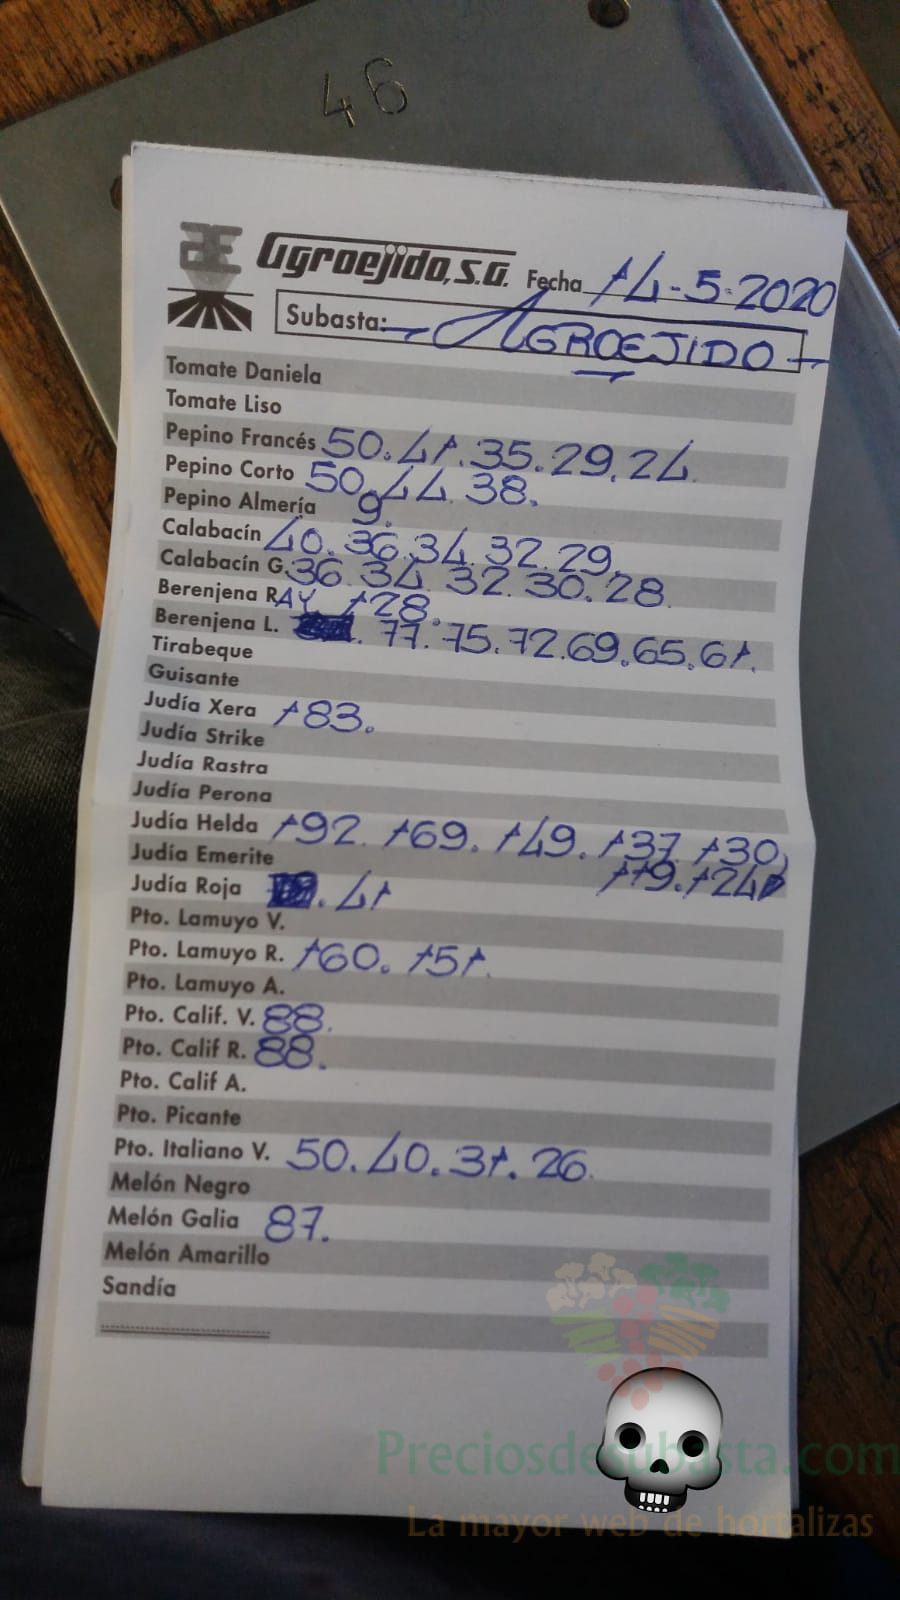 46
Agroejido, S.A. Fecha 14-5-2020
Subasta: - AGROEJIDO -
Tomate Daniela
Tomate Liso
Pepino Francés 50.41.35.29.24
Pepino Corto 50.44.38.
Pepino Almería 9.
Calabacín 40.36.34.32.29.
Calabacín G. 36.34.32.30.28.
Berenjena RAY 128.
Berenjena L. .77.75.72.69.65.61.
Tirabeque
Guisante
Judía Xera 183.
Judía Strike
Judía Rastra
Judía Perona
Judía Helda 192.169.149.137.130,
Judía Emerite 119.124
Judía Roja .41
Pto. Lamuyo V.
Pto. Lamuyo R. 160.151.
Pto. Lamuyo A.
Pto. Calif. V. 88.
Pto. Calif R. 88.
Pto. Calif A.
Pto. Picante
Pto. Italiano V. 50.40.31.26.
Melón Negro
Melón Galia 87.
Melón Amarillo
Sandía
Preciosdesubasta.com
La mayor web de hortalizas